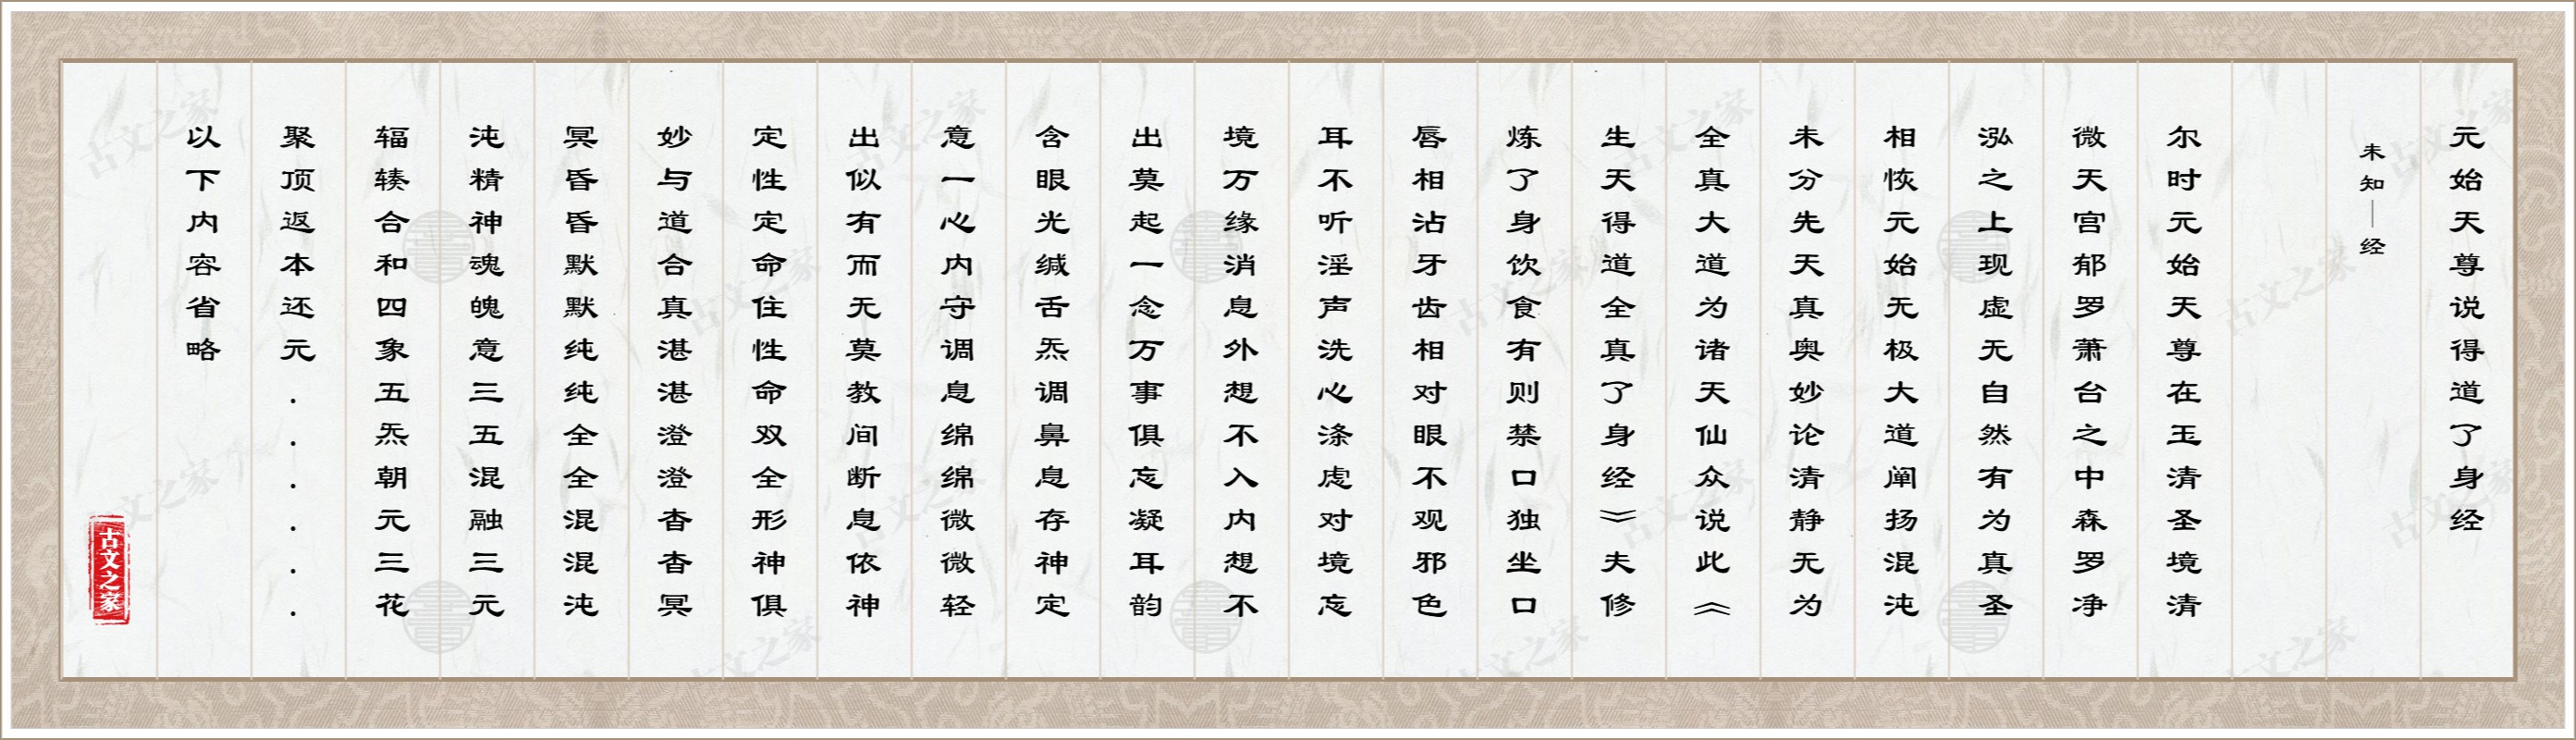 元始天尊说得道了身经
未知｜经
尔时元始天尊在玉清圣境清
微天宫郁罗萧台之中森罗净
泓之上现虚无自然有为真圣
相恢元始无极大道阐扬混沌
未分先天真奥妙论清静无为
全真大道为诸天仙众说此《
生天得道全真了身经》夫修
炼了身饮食有则禁口独坐口
唇相沾牙齿相对眼不观邪色
耳不听淫声洗心涤虑对境忘
境万缘消息外想不入内想不
出莫起一念万事俱忘凝耳韵
含眼光缄舌炁调鼻息存神定
意一心内守调息绵绵微微轻
出似有而无莫教间断息依神
定性定命住性命双全形神俱
妙与道合真湛湛澄澄杳杳冥
冥昏昏默默纯纯全全混混沌
沌精神魂魄意三五混融三元
辐辏合和四象五炁朝元三花
聚顶返本还元......
以下内容省略
古文之家